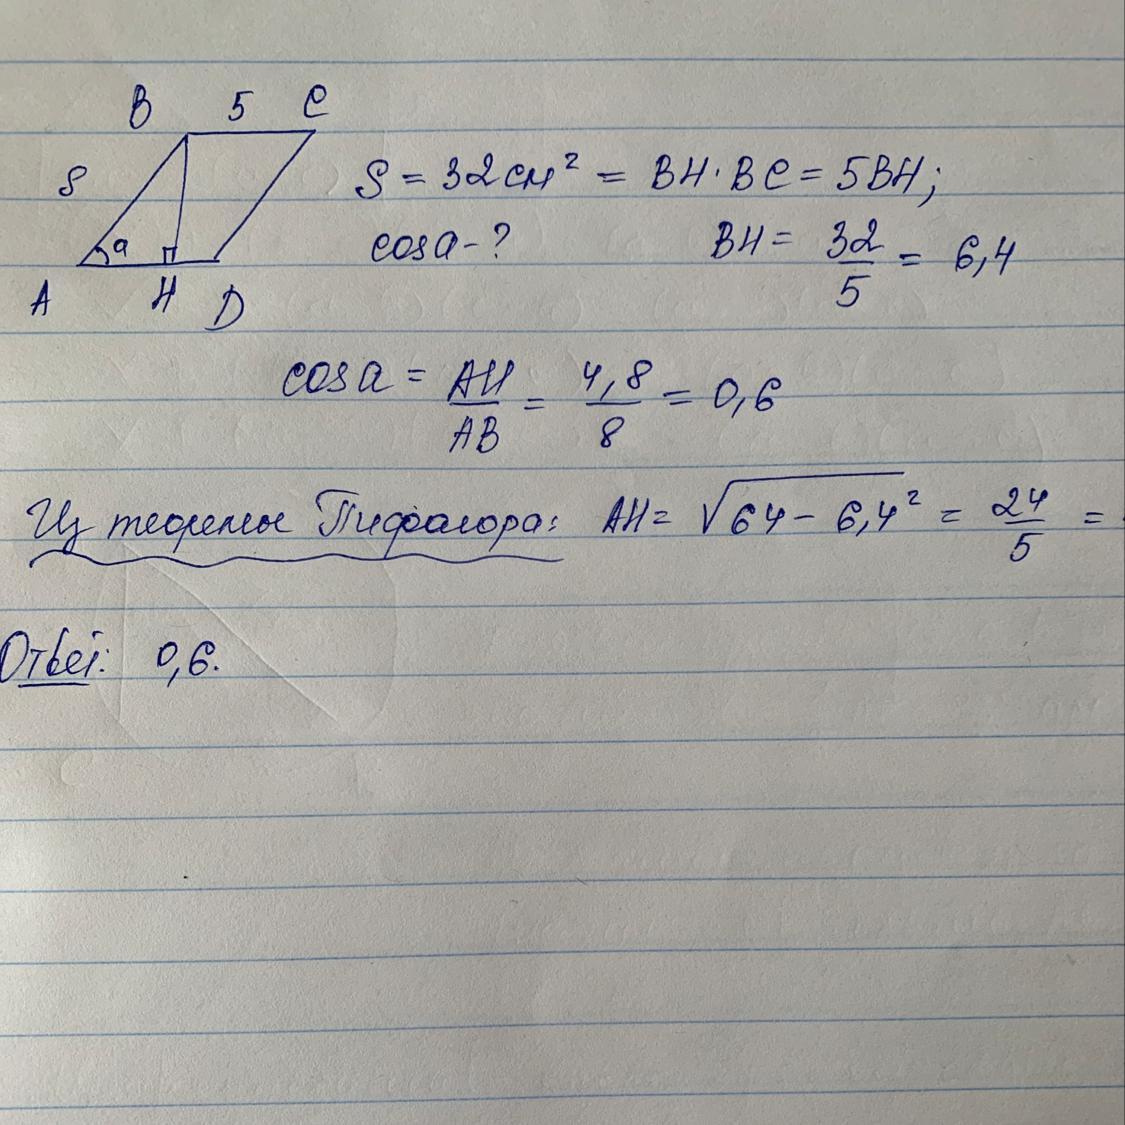 B 5 C
8
a
A H D
S = 32 см² = BH · BC = 5BH;
cos a - ?
BH = 32/5 = 6,4
cos a = AH/AB = 4,8/8 = 0,6
Из теоремы Пифагора: AH = √(64 - 6,4²) = 24/5 =
Ответ: 0,6.